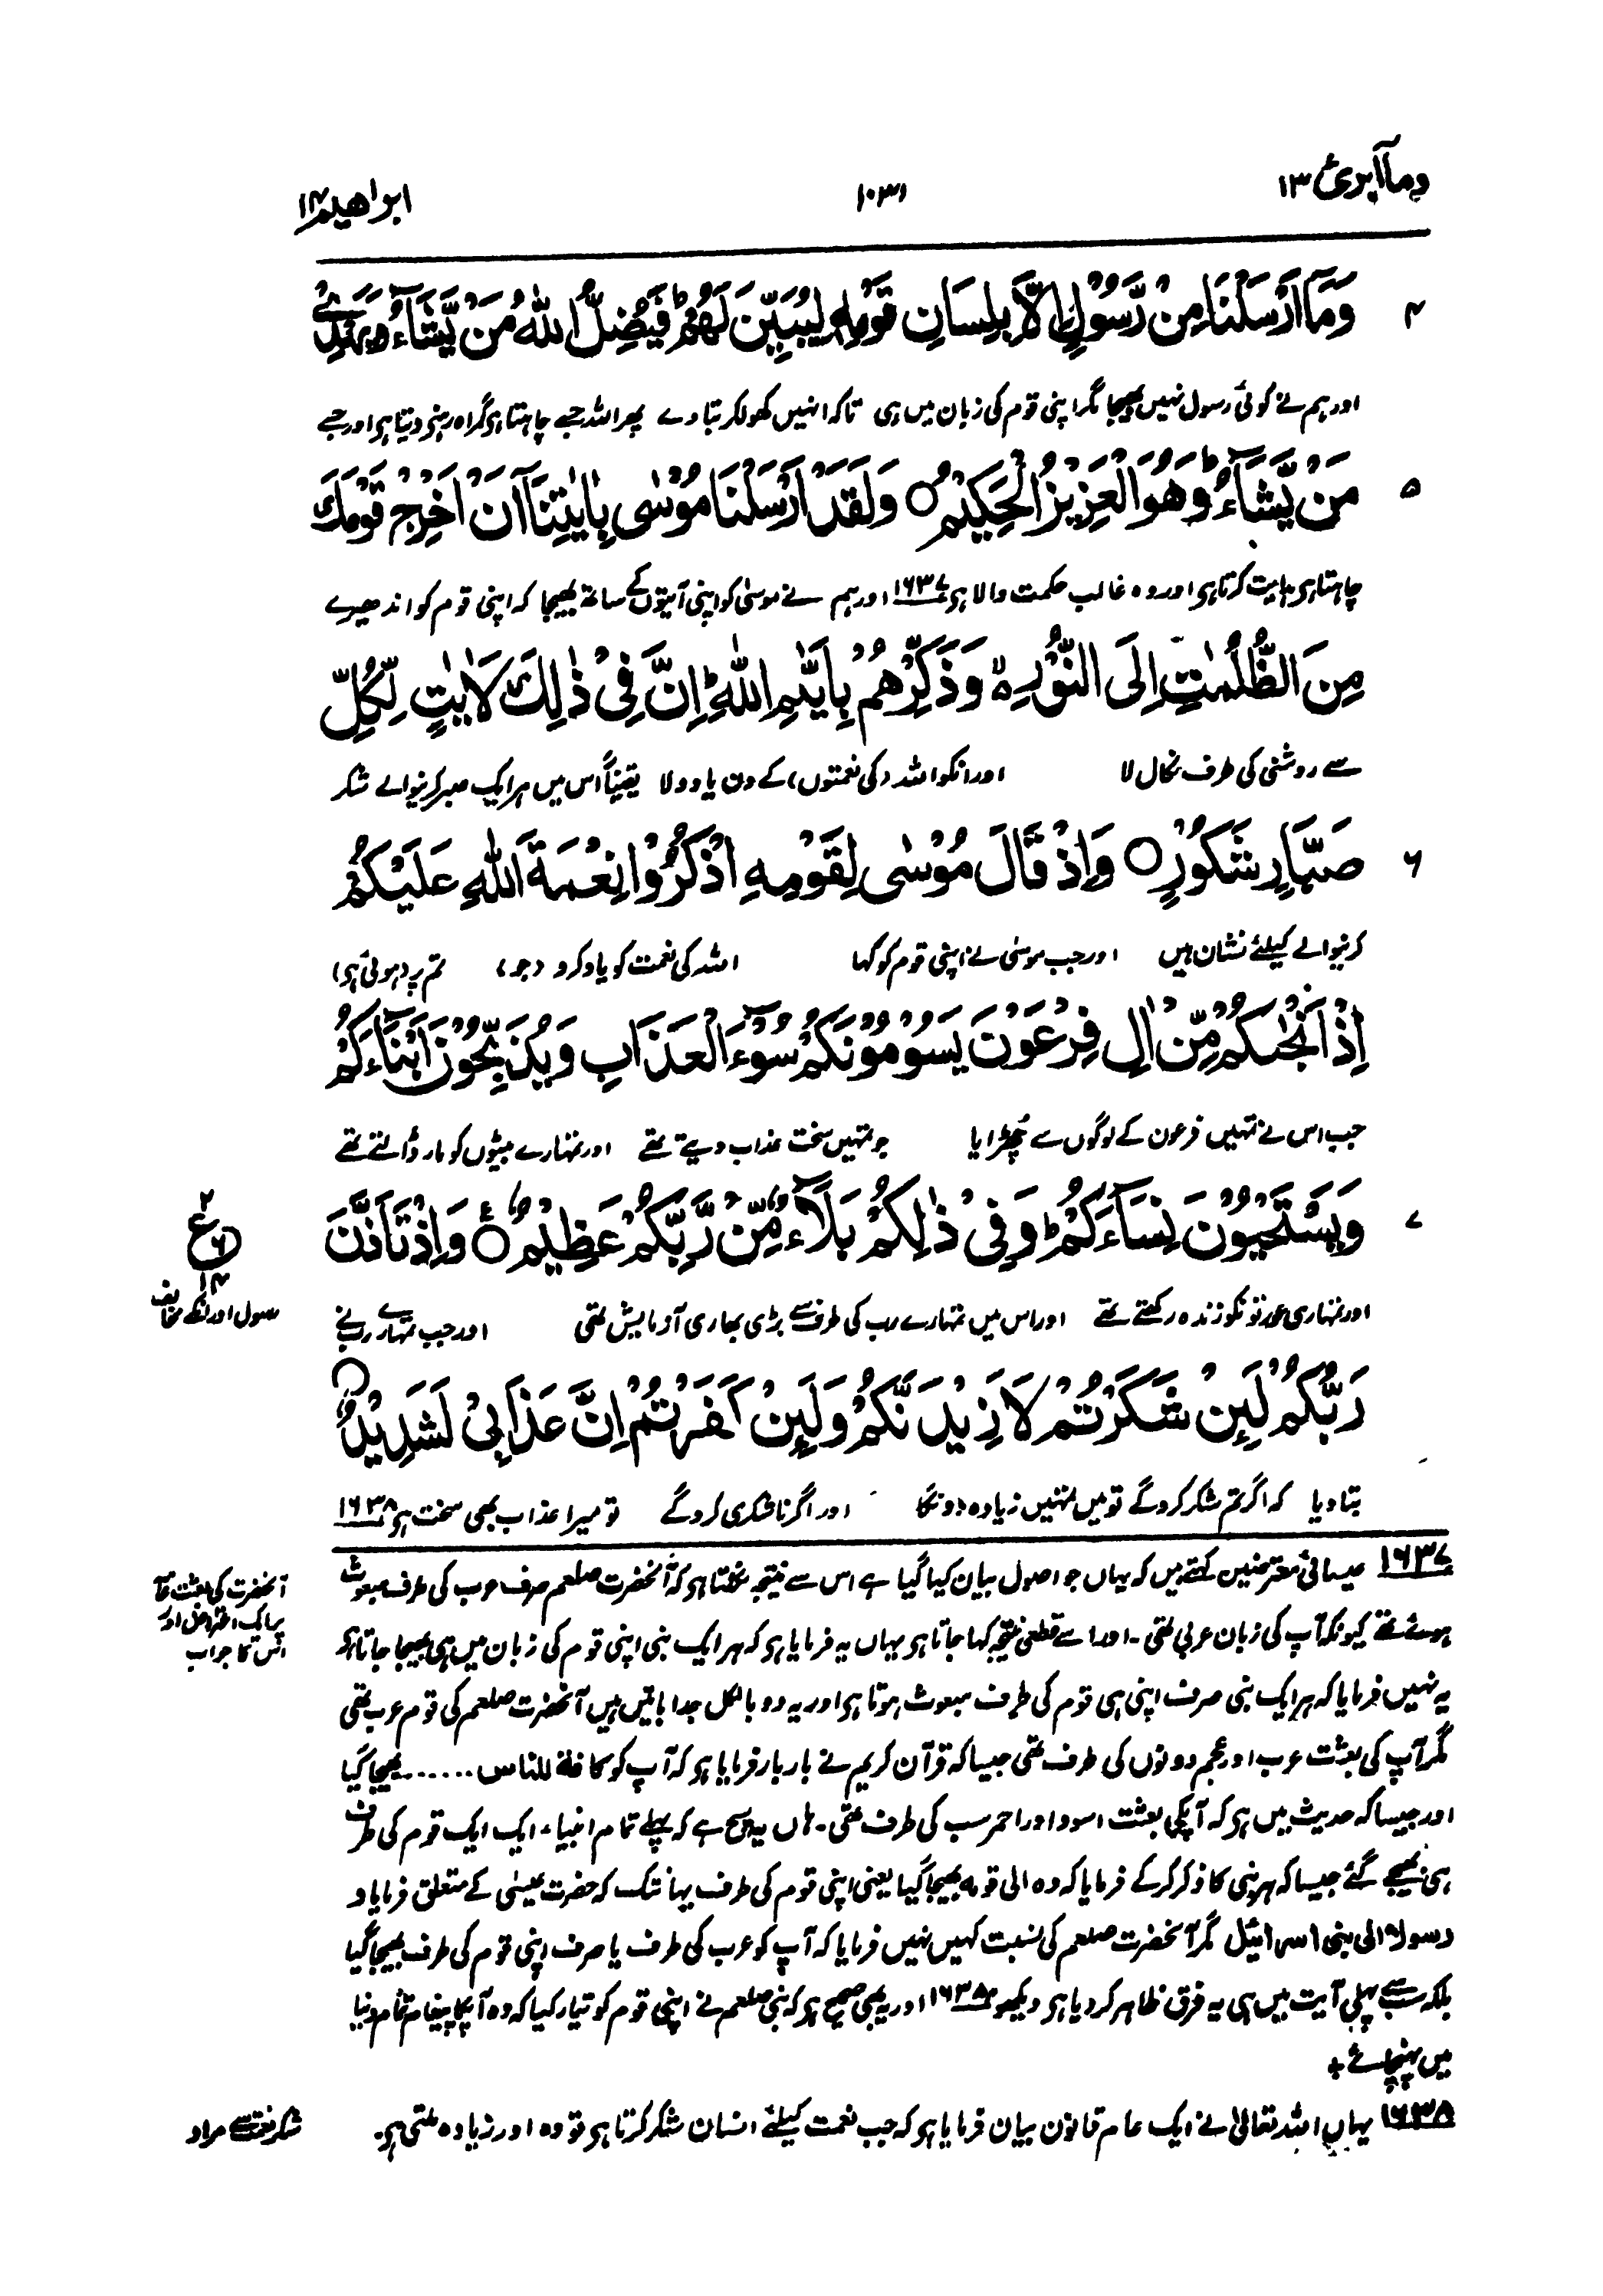 ومآابرئ ١٣
١٠٣١
ابراهيم ١٤
٤ وَمَآ اَرْسَلْنَا مِنْ رَّسُوْلٍ اِلَّا بِلِسَانِ قَوْمِهٖ لِيُبَيِّنَ لَهُمْ ؕ فَيُضِلُّ اللّٰهُ مَنْ يَّشَآءُ وَيَهْدِيْ
اور ہم نے کوئی رسول نہیں بھیجا مگر اپنی قوم کی زبان میں ہی تاکہ انہیں کھولکر بتا دے پھر اللہ جسے چاہتا ہی گمراہ رہنے دیتا ہی اور جسے
٥ مَنْ يَّشَآءُ ؕ وَهُوَ الْعَزِيْزُ الْحَكِيْمُ ○ وَلَقَدْ اَرْسَلْنَا مُوْسٰى بِاٰيٰتِنَآ اَنْ اَخْرِجْ قَوْمَكَ
چاہتا ہی ہدایت کرتا ہی اور وہ غالب حکمت والا ہی ١٦٣٧ اور ہم نے موسیٰ کو اپنی آیتوں کے ساتھ بھیجا کہ اپنی قوم کو اندھیرے
مِنَ الظُّلُمٰتِ اِلَى النُّوْرِ ۙ۬ وَذَكِّرْهُمْ بِاَيّٰىمِ اللّٰهِ ؕ اِنَّ فِيْ ذٰلِكَ لَاٰيٰتٍ لِّكُلِّ
سے روشنی کی طرف نکال لا اور انکو اللہ (کی نعمتوں) کے دن یاد دلا یقیناً اس میں ہر ایک صبر کرنیوالے شکر
٦ صَبَّارٍ شَكُوْرٍ ○ وَاِذْ قَالَ مُوْسٰى لِقَوْمِهِ اذْكُرُوْا نِعْمَةَ اللّٰهِ عَلَيْكُمْ
کرنیوالے کیلئے نشان ہیں اور جب موسیٰ نے اپنی قوم کو کہا اللہ کی نعمت کو یاد کرو (جو) تم پر (ہوئی ہی)
اِذْ اَنْجٰىكُمْ مِّنْ اٰلِ فِرْعَوْنَ يَسُوْمُوْنَكُمْ سُوْٓءَ الْعَذَابِ وَيُذَبِّحُوْنَ اَبْنَآءَكُمْ
جب اس نے تمہیں فرعون کے لوگوں سے چھڑایا جو تمہیں سخت عذاب دیتے تھے اور تمہارے بیٹوں کو مار ڈالتے تھے
٧ وَيَسْتَحْيُوْنَ نِسَآءَكُمْ ؕ وَفِيْ ذٰلِكُمْ بَلَآءٌ مِّنْ رَّبِّكُمْ عَظِيْمٌ ○ وَاِذْ تَاَذَّنَ
٢
ع
٦
١٤
رسول اور انکے مخالف
اور تمہاری عورتونکو زندہ رکھتے تھے اور اس میں تمہارے رب کی طرف سے بڑی بھاری آزمایش تھی اور جب تمہارے رب نے
رَبُّكُمْ لَئِنْ شَكَرْتُمْ لَاَزِيْدَنَّكُمْ وَلَئِنْ كَفَرْتُمْ اِنَّ عَذَابِيْ لَشَدِيْدٌ ○
بتا دیا کہ اگر تم شکر کرو گے تو میں تمہیں زیادہ دونگا اور اگر ناشکری کرو گے تو میرا عذاب بھی سخت ہی ١٦٣٨
١٦٣٧ عیسائی معترضین کہتے ہیں کہ یہاں جو اصول بیان کیا گیا ہے اس سے نتیجہ نکلتا ہی کہ آنحضرت صلعم صرف عرب کی طرف مبعوث
آنحضرت کی بعثت عامہ
پر ایک اعتراض اور
اس کا جواب
ہوئے تھے کیونکہ آپ کی زبان عربی تھی۔ اور اسے قطعی نتیجہ کہا جاتا ہی یہاں یہ فرمایا ہی کہ ہر ایک نبی اپنی قوم کی زبان میں ہی بھیجا جاتا ہی
یہ نہیں فرمایا کہ ہر ایک نبی صرف اپنی ہی قوم کی طرف مبعوث ہوتا ہی اور یہ دو بالکل جدا باتیں ہیں آنحضرت صلعم کی قوم عرب تھی
مگر آپ کی بعثت عرب اور عجم دونوں کی طرف تھی جیسا کہ قرآن کریم نے بار بار فرمایا ہی کہ آپ کو کافۃ للناس ...... بھیجا گیا
اور جیسا کہ حدیث میں ہی کہ آپکی بعثت اسود اور احمر سب کی طرف تھی۔ ہاں یہ سچ ہے کہ پہلے تمام انبیاء ایک ایک قوم کی طرف
ہی بھیجے گئے جیسا کہ ہر نبی کا ذکر کر کے فرمایا کہ وہ الی قومہ بھیجا گیا یعنی اپنی قوم کی طرف یہانتک کہ حضرت عیسیٰ کے متعلق فرمایا و
رسولا الی بنی اسرائیل مگر آنحضرت صلعم کی نسبت کہیں نہیں فرمایا کہ آپ کو عرب کی طرف یا صرف اپنی قوم کی طرف بھیجا گیا
بلکہ سب سے پہلی آیت میں ہی یہ فرق ظاہر کر دیا ہی دیکھو اور یہ بھی صحیح ہی کہ نبی صلعم نے اپنی قوم کو تیار کیا کہ وہ آپکا پیغام تمام دنیا
میں پہنچائے +
١٦٣٨ یہاں اللہ تعالیٰ نے ایک عام قانون بیان فرمایا ہی کہ جب نعمت کیلئے انسان شکر کرتا ہی تو وہ اور زیادہ ملتی ہی۔
شکر نعمت سے مراد